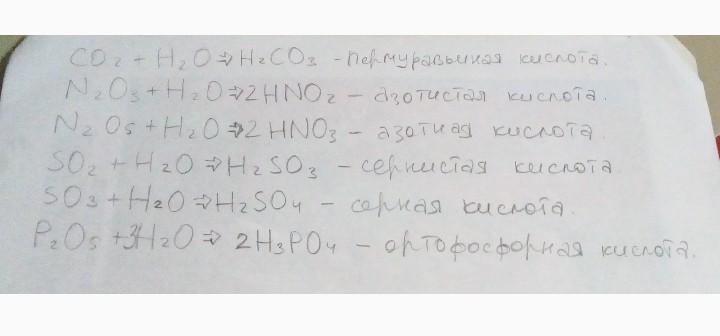 CO₂ + H₂O ⇒ H₂CO₃ - пермуравьиная кислота.
N₂O₃ + H₂O ⇒ 2HNO₂ - азотистая кислота.
N₂O₅ + H₂O ⇒ 2HNO₃ - азотная кислота.
SO₂ + H₂O ⇒ H₂SO₃ - сернистая кислота
SO₃ + H₂O ⇒ H₂SO₄ - серная кислота.
P₂O₅ + 3H₂O ⇒ 2H₃PO₄ - ортофосфорная кислота.